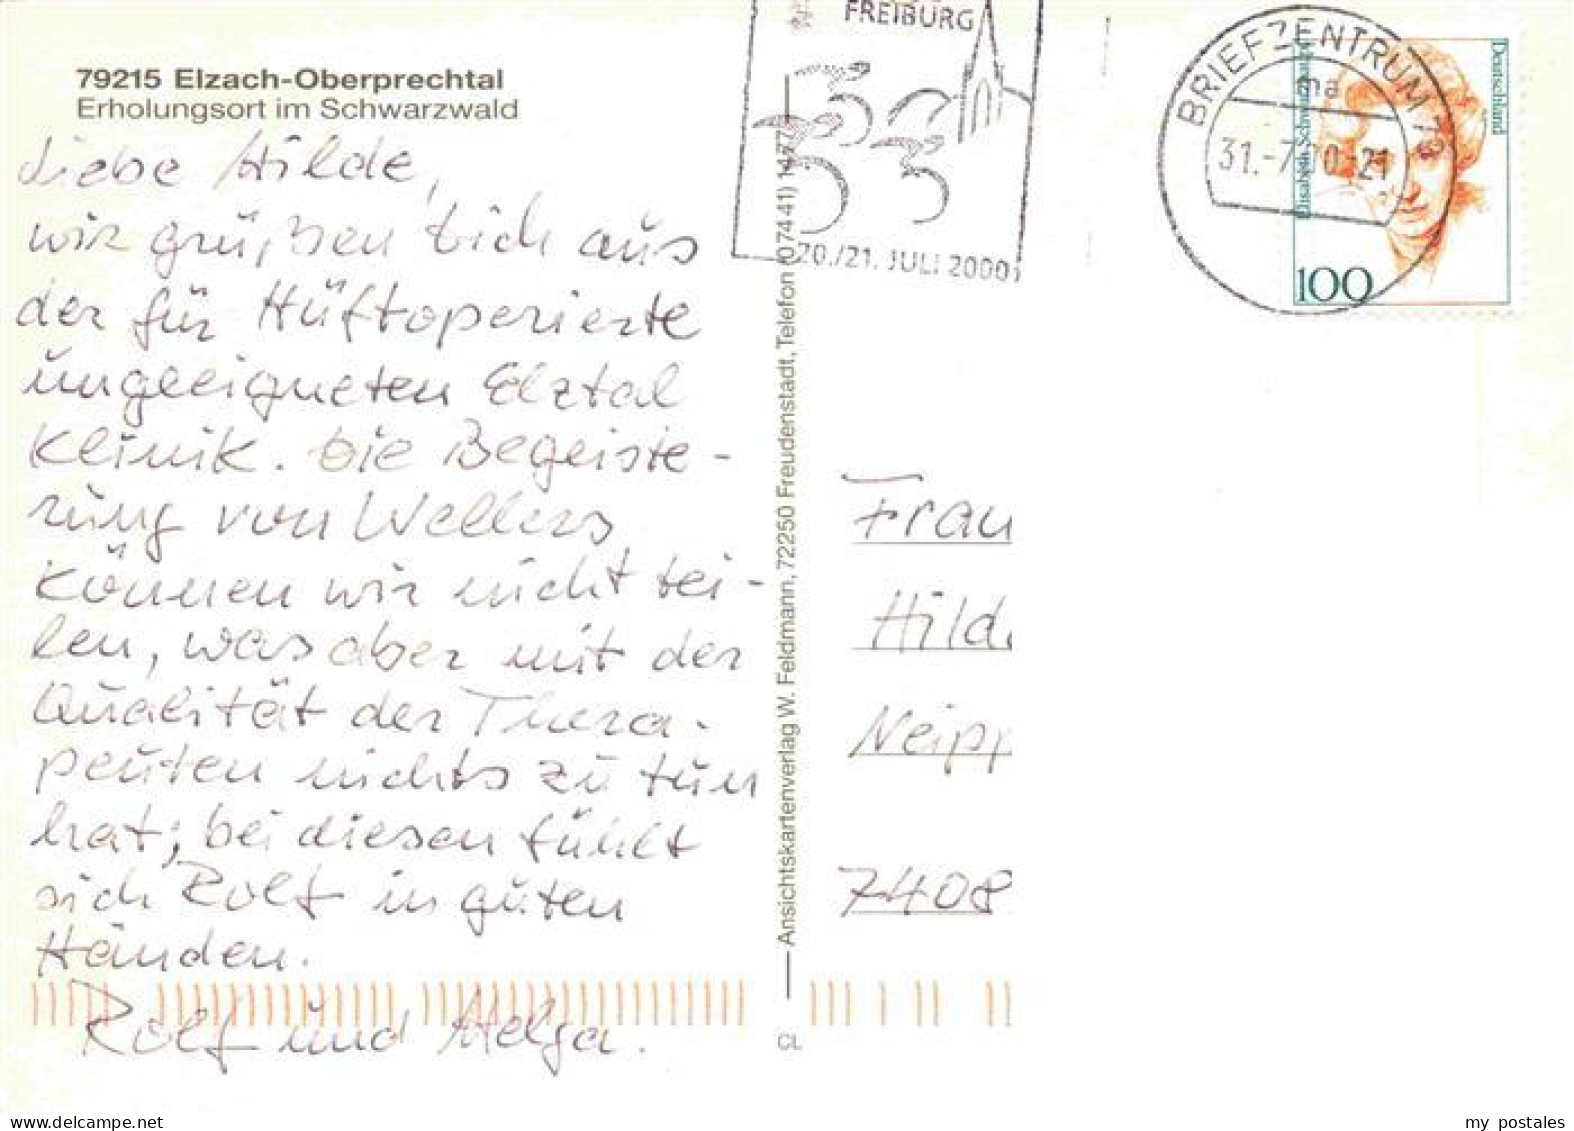 79215 Elzach-Oberprechtal
Erholungsort im Schwarzwald
Liebe Hilde,
wir grüßen Dich aus
der für Hüftoperierte
ungeeigneten Elztal
Klinik. Die Begeiste-
rung von Wellers
können wir nicht tei-
len, was aber mit der
Qualität der Thera-
peuten nichts zu tun
hat; bei diesen fühlt
sich Rolf in guten
Händen.
Rolf und Helga.
Ansichtskartenverlag W. Feldmann, 72250 Freudenstadt, Telefon (07441) 1477
CL
FREIBURG
20./21. JULI 2000
BRIEFZENTRUM 79
ma
31.-7.00-21
Deutschland
Elisabeth Schwarzhaupt
100
Frau
Hild
Neipp
7408
my postales